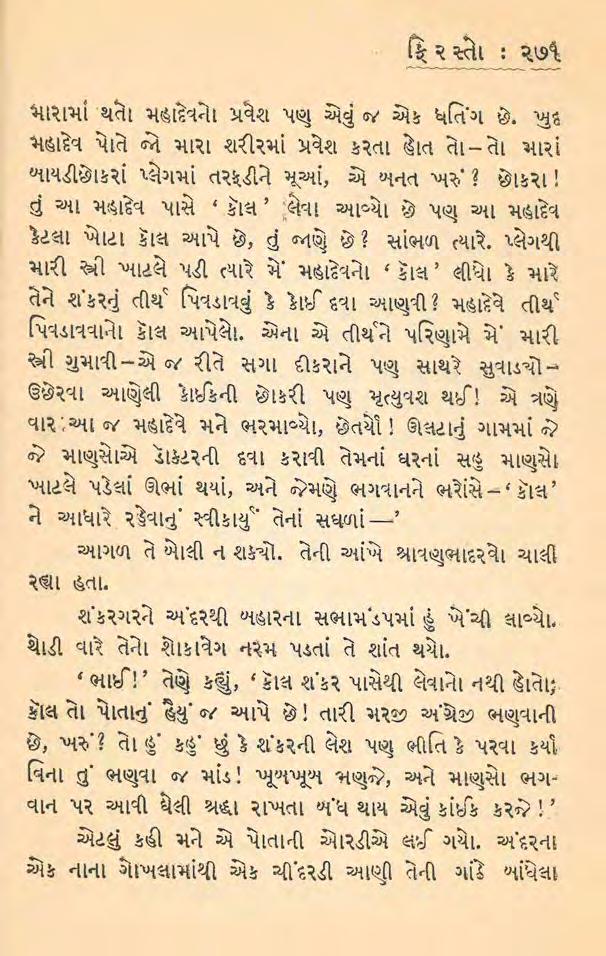 ફિરસ્તો : ૨૭૧
મારામાં થતો મહાદેવનો પ્રવેશ પણ એવું જ એક ધતિંગ છે. ખુદ
મહાદેવ પોતે જો મારા શરીરમાં પ્રવેશ કરતા હોત તો–તો મારાં
બાયડીછોકરાં પ્લેગમાં તરફડીને મૂઆં, એ બનત ખરું? છોકરા!
તું આ મહાદેવ પાસે ‘ કૉલ’ લેવા આવ્યો છે પણ આ મહાદેવ
કેટલા ખોટા કૉલ આપે છે, તું જાણે છે? સાંભળ ત્યારે. પ્લેગથી
મારી સ્ત્રી ખાટલે પડી ત્યારે મેં મહાદેવનો ‘ કૉલ’ લીધો કે મારે
તેને શંકરનું તીર્થ પિવડાવવું કે કોઈ દવા આણવી? મહાદેવે તીર્થ
પિવડાવવાનો કૉલ આપેલો. એના એ તીર્થને પરિણામે મેં મારી
સ્ત્રી ગુમાવી–એ જ રીતે સગા દીકરાને પણ સાથરે સુવાડ્યો–
ઉછેરવા આણેલી કોઈકની છોકરી પણ મૃત્યુવશ થઈ! એ ત્રણે
વાર આ જ મહાદેવે મને ભરમાવ્યો, છેતર્યો! ઊલટાનું ગામમાં જે
જે માણસોએ ડૉક્ટરની દવા કરાવી તેમનાં ઘરનાં સહુ માણસો
ખાટલે પડેલાં ઊભાં થયાં, અને જેમણે ભગવાનને ભરોંસે–‘ કૉલ’
ને આધારે રહેવાનું સ્વીકાર્યું તેનાં સઘળાં—’
આગળ તે બોલી ન શક્યો. તેની આંખે શ્રાવણભાદરવો ચાલી
રહ્યા હતા.
શંકરગરને અંદરથી બહારના સભામંડપમાં હું ખેંચી લાવ્યો.
થોડી વારે તેનો શોકાવેગ નરમ પડતાં તે શાંત થયો.
‘ ભાઈ!’ તેણે કહ્યું, ‘ કૉલ શંકર પાસેથી લેવાનો નથી હોતો;
કૉલ તો પોતાનું હૈયું જ આપે છે! તારી મરજી અંગ્રેજી ભણવાની
છે, ખરું? તો હું કહું છું કે શંકરની લેશ પણ ભીતિ કે પરવા કર્યા
વિના તું ભણવા જ માંડ! ખૂબખૂબ ભણજે, અને માણસો ભગ-
વાન પર આવી ઘેલી શ્રદ્ધા રાખતા બંધ થાય એવું કાંઈક કરજે!’
એટલું કહી મને એ પોતાની ઓરડીએ લઈ ગયો. અંદરના
એક નાના ગોખલામાંથી એક ચીંદરડી આણી તેની ગાંઠે બાંધેલા